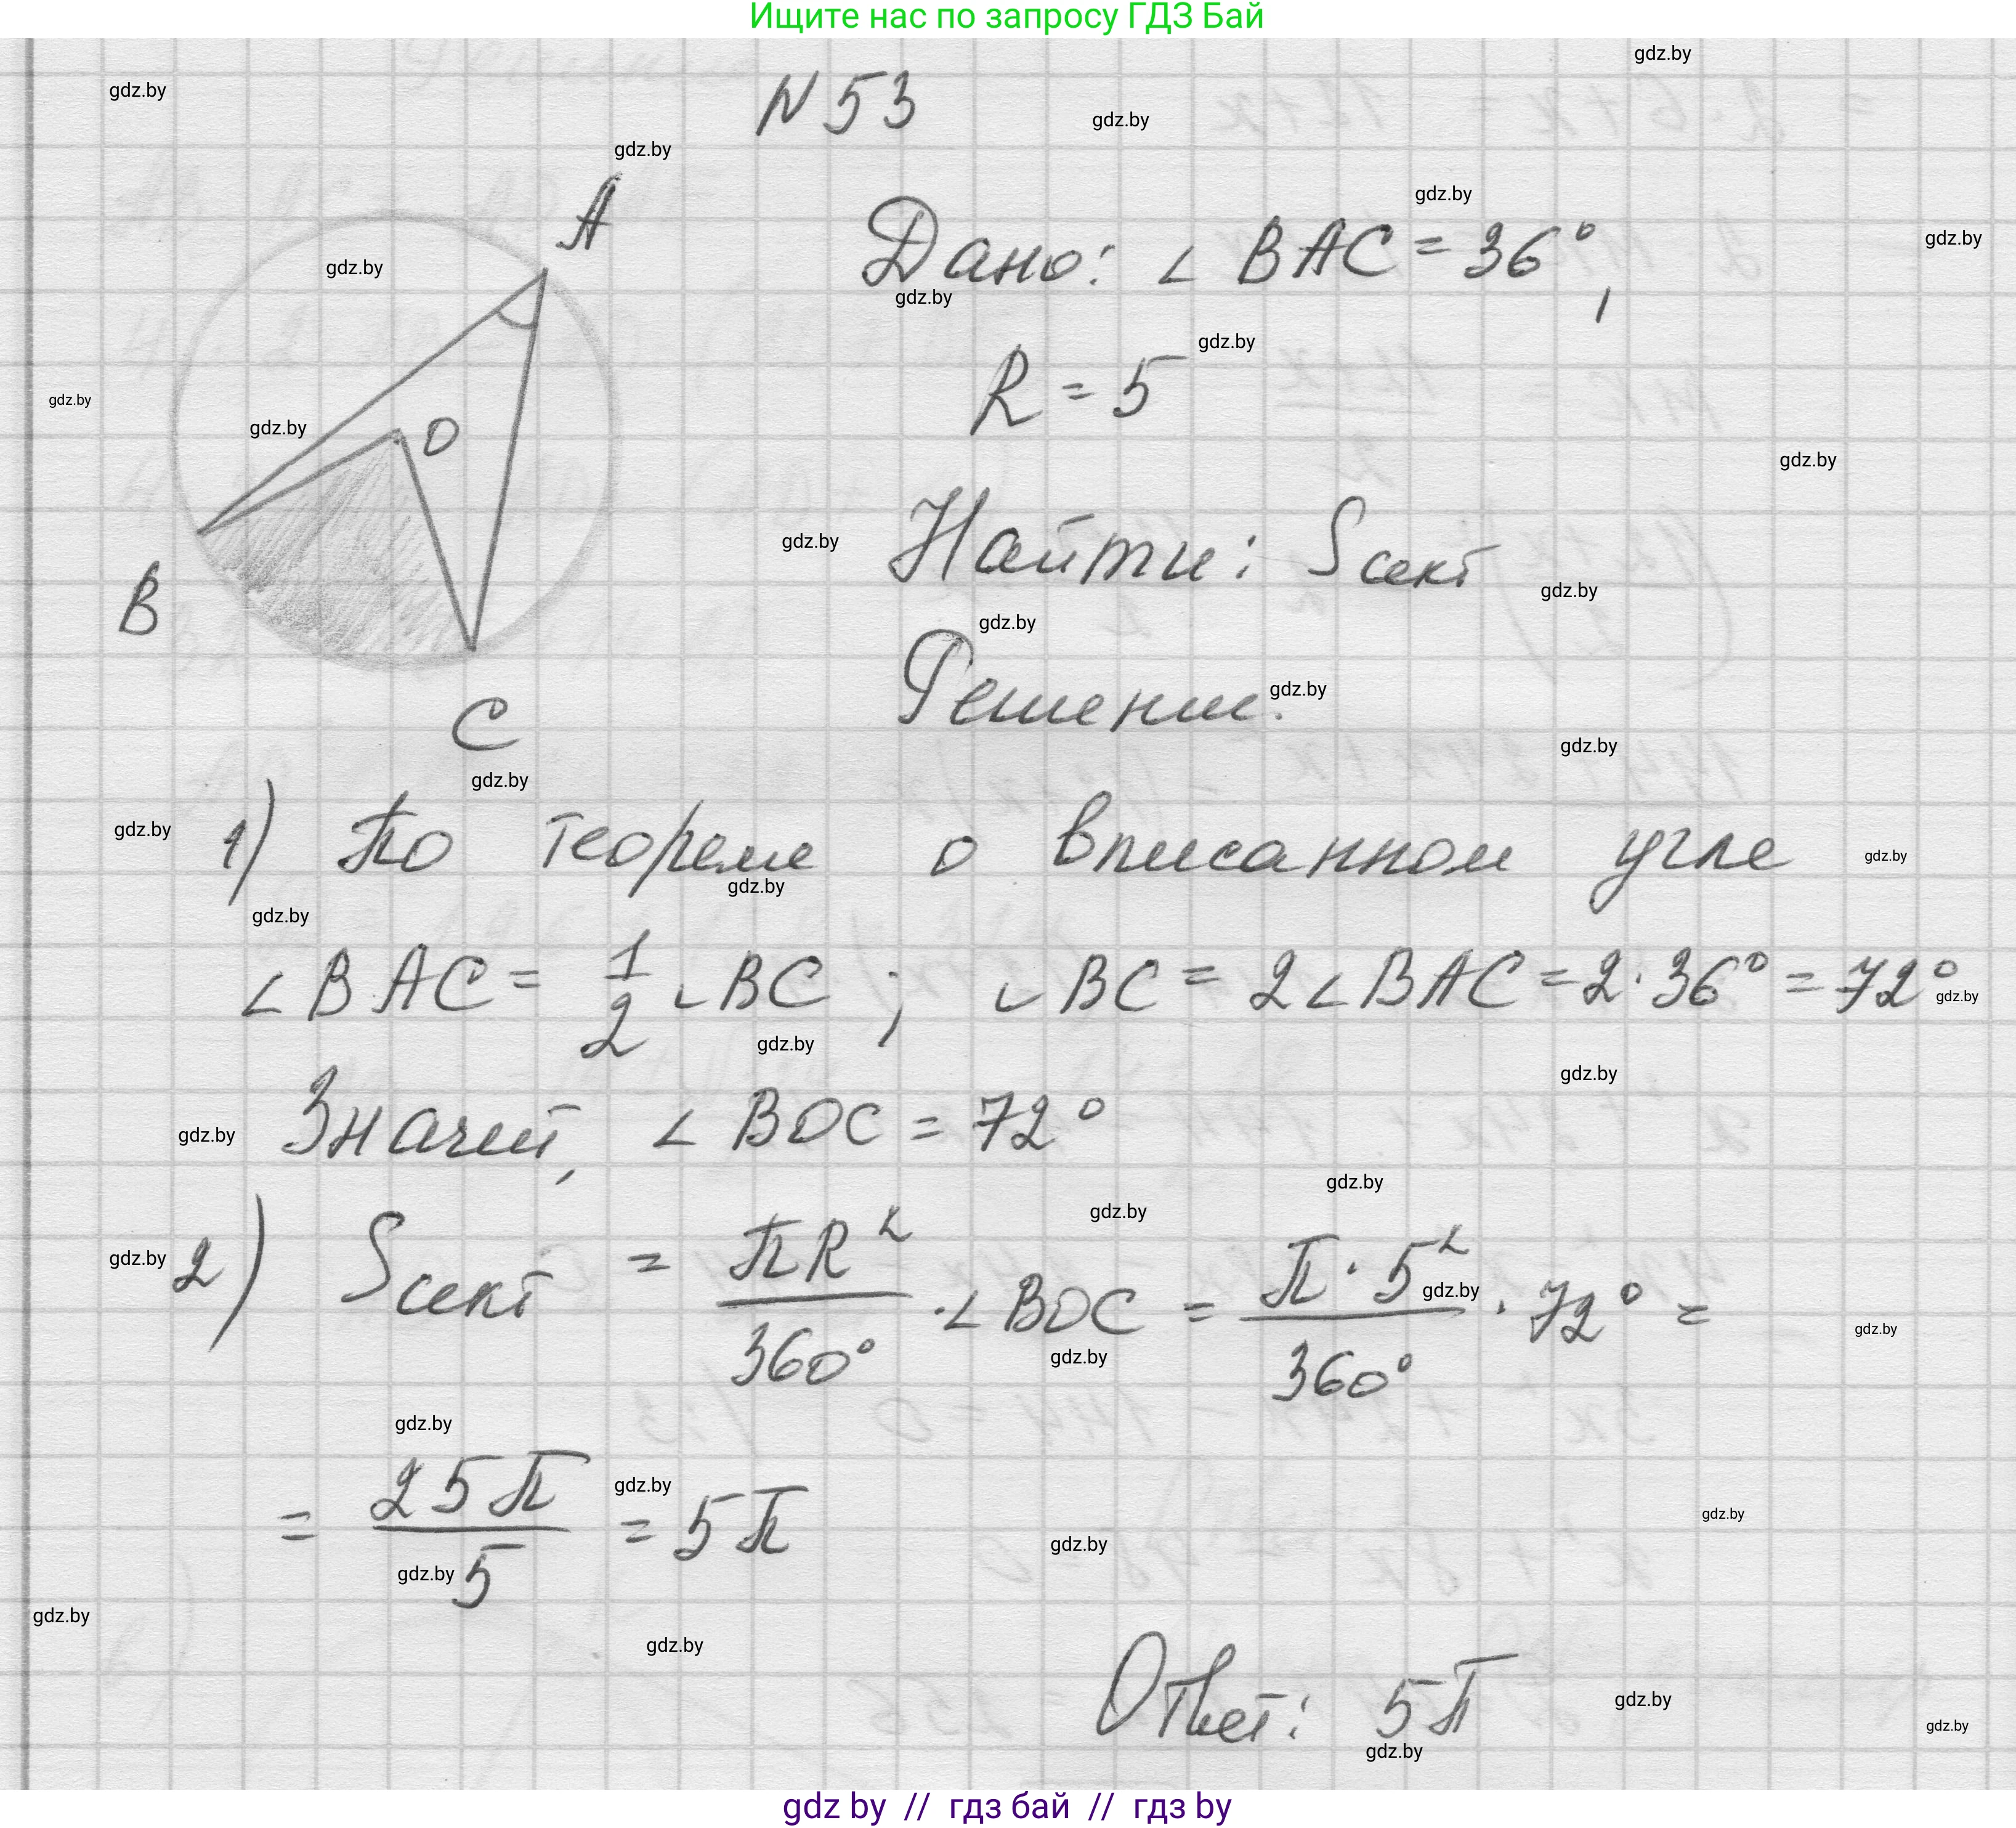 Ищите нас по запросу ГДЗ Бай
N 53
Дано: ∠ BAC = 36°,
R = 5
Найти: Sсект
Решение.
A
O
B
C
1) По теореме о вписанном угле
∠BAC = 1/2 ◡BC ; ◡BC = 2∠BAC = 2·36° = 72°
Значит, ∠ BOC = 72°
2) Sсект = πR²/360° · ∠BOC = π·5²/360° · 72° =
= 25π/5 = 5π
Ответ: 5π
gdz.by
gdz by // гдз бай // гдз by